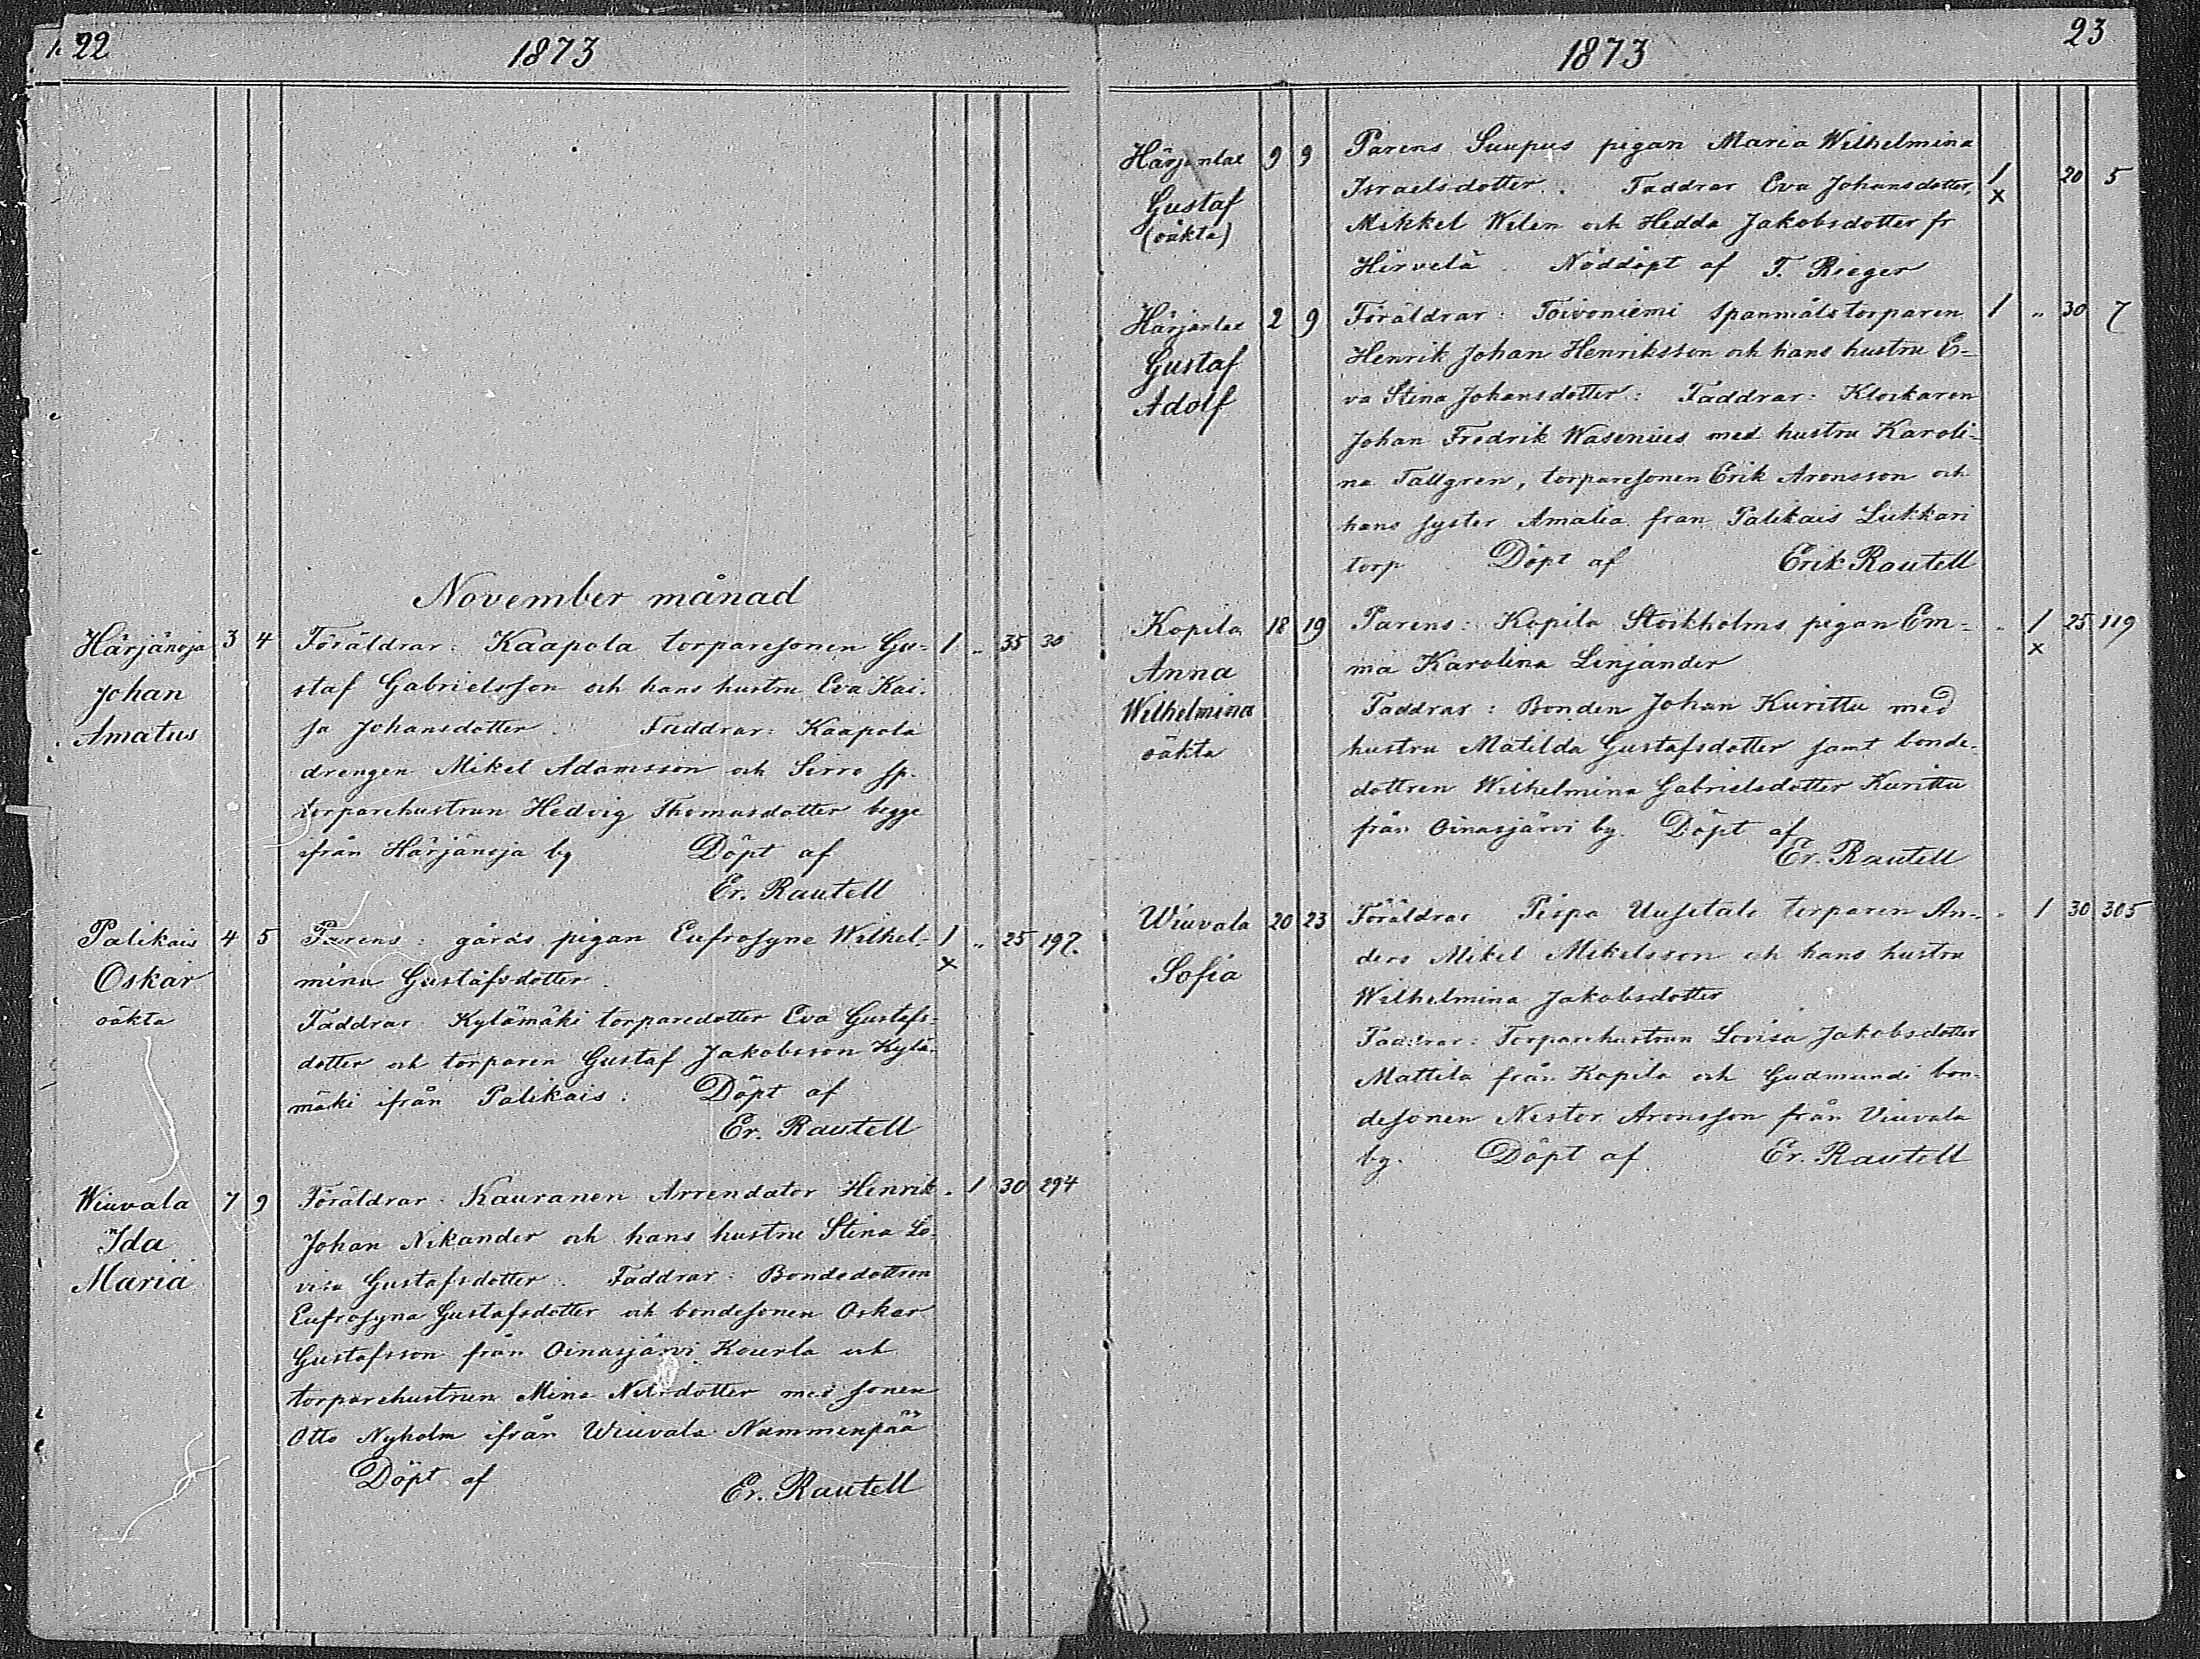 22
1873
November månad
Härjänoja 3 4 Föräldrar: Kaapola torparesonen Gu- 1 „ 35 30
Johan staf Gabrielsson och hans hustru Eva Kai-
Amatus sa Johansdotter. Faddrar: Kaapola
drengen Mikel Adamsson och Sirro sp.
torparehustrun Hedvig Thomasdotter begge
ifrån Härjänoja by Döpt af
Er. Rautell
Palikais 4 5 Parens: gårds pigan Eufrosyne Wilhel- 1 „ 25 197.
Oskar mina Gustafsdotter. x
oäkta Faddrar Kylämäki torparedotter Eva Gustafs-
dotter och torparen Gustaf Jakobsson Kylä-
mäki ifrån Palikais: Döpt af
Er. Rautell
Wiuvala 7 9 Föräldrar: Kauranen Arrendator Henrik „ 1 30 294
Ida Johan Nikander och hans hustru Stina Lo-
Maria visa Gustafsdotter. Faddrar: Bondedottren
Eufrosyna Gustafsdotter och bondesonen Oskar
Gustafsson från Oinasjärvi Kourla och
torparehustrun Mina Nilsdotter med sonen
Otto Nyholm ifrån Wiuvala Nummenpää
Döpt af Er. Rautell
23
1873
9 9 Parens Suupus pigan Maria Wilhelmina
Israelsdotter. Faddrar Eva Johansdotter, 1 20 5
Gustaf Mikkel Wilen och Hedda Jakobsdotter fr x
(oäkta) Hirvelä. Nöddöpt af T. Rieger
2 9 Föräldrar: Toivoniemi spanmåls torparen 1 „ 30 7
Gustaf Henrik Johan Henriksson och hans hustru E-
Adolf va Stina Johansdotter: Faddrar: Klockaren
Johan Fredrik Wasenius med hustru Karoli-
na Tallgren, torparesonen Erik Aronsson och
hans syster Amalia från Palikais Lukkari
torp Döpt af Erik Rautell
Kopila 18 19 Parens: Kopila Stockholms pigan Em- „ 1 25 119
Anna ma Karolina Linjander x
Wilhelmina Faddrar: Bonden Johan Kurittu med
oäkta hustru Matilda Gustafsdotter samt bonde-
dottren Wilhelmina Gabrielsdotter Kurittu
från Oinasjärvi by. Döpt af
Er. Rautell
Wiuvala 20 23 Föräldrar Pispa Uusitalo torparen An- „ 1 30 305
Sofia ders Mikel Mikelsson och hans hustru
Wilhelmina Jakobsdotter
Faddrar: Torparehustrun Lovisa Jakobsdotter
Mattila från Kopila och Gudmundi bon-
desonen Nestor Aronsson från Viuvala
by. Döpt af Er. Rautell